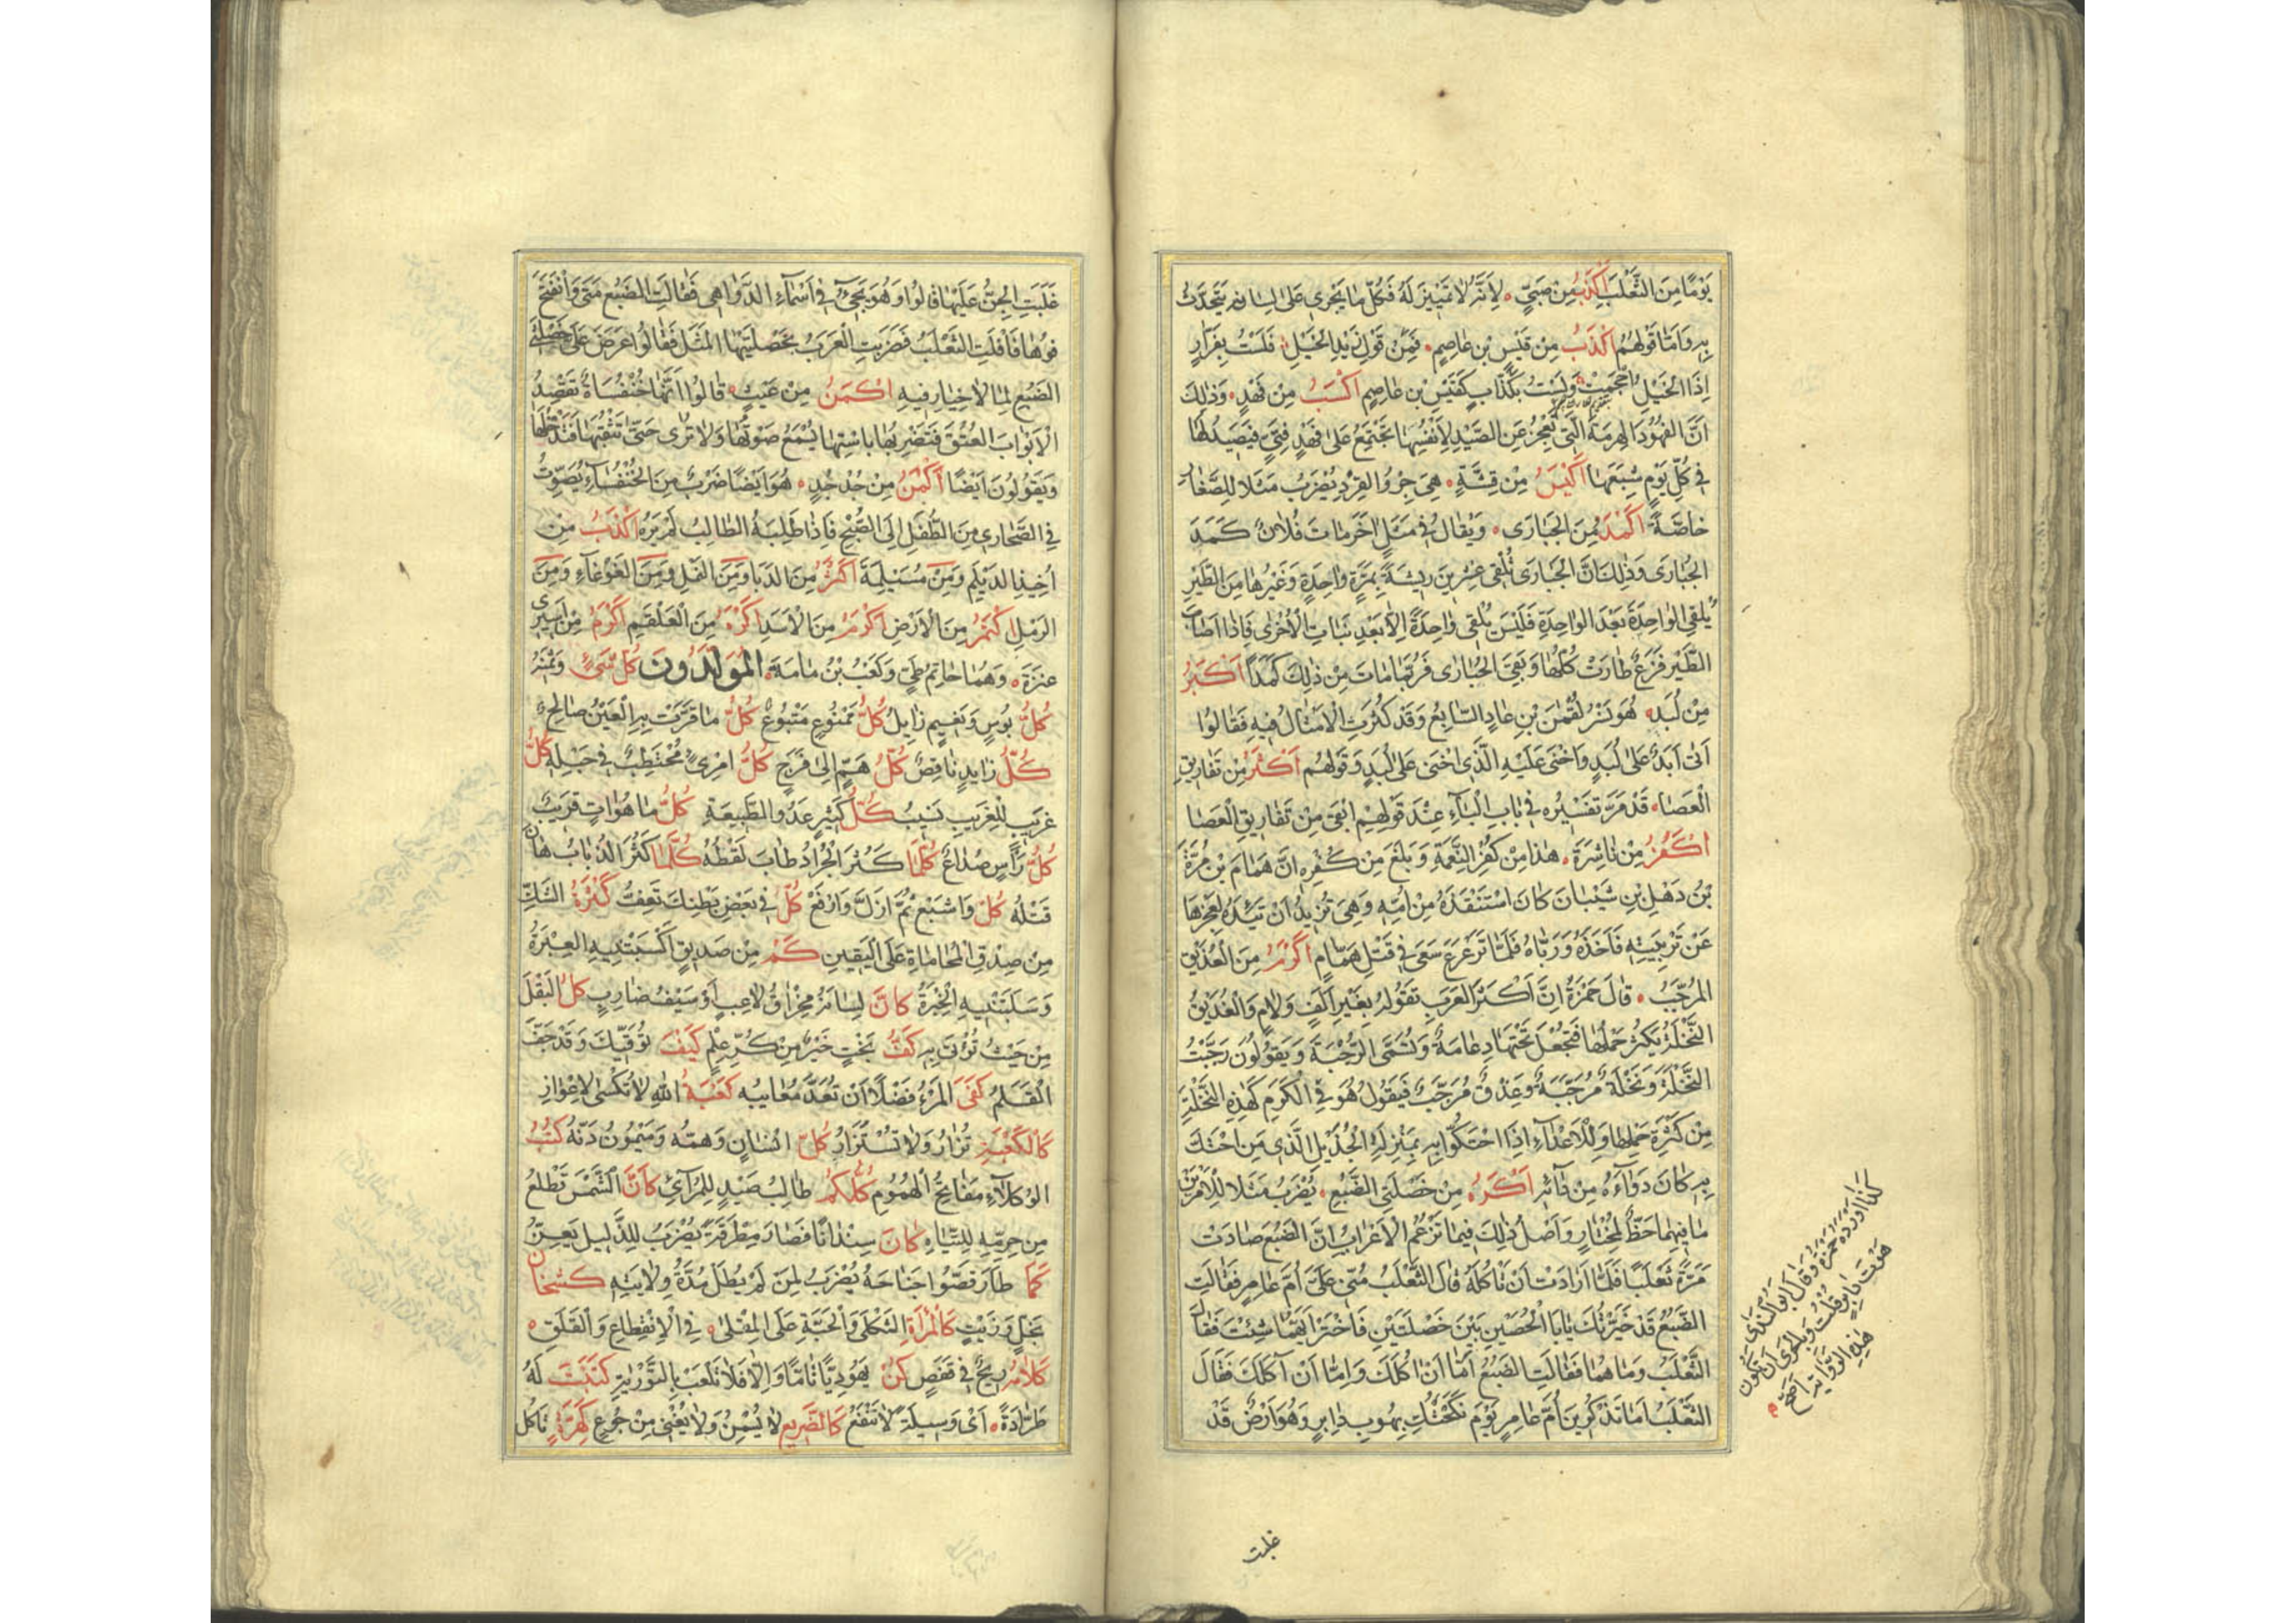 يَوْمًا مِنَ الثَّعْلَبِ اَكْذَبُ مِنْ صَبِيٍّ لِاَنَّهُ لَا تَمْيِيزَ لَهُ فَكُلُّ مَا يَجْرِى عَلَى لِسَانِهِ يَتَحَدَّثُ
بِهِ وَاَمَّا قَوْلُهُمْ اَكْذَبُ مِنْ قَيْسِ بْنِ عَاصِمٍ فَمِنْ قَوْلِ زَيْدِ الْخَيْلِ فَلَسْتُ بِفَرَّارٍ
اِذَا الْخَيْلُ اَحْجَمَتْ وَلَسْتُ بِكَذَّابٍ كَقَيْسِ بْنِ عَاصِمٍ اَكْسَبُ مِنْ فَهْدٍ وَذٰلِكَ
اَنَّ الْفُهُودَ الْهَرِمَةَ الَّتِى تَعْجِزُ عَنِ الصَّيْدِ لِاَنْفُسِهَا تَجْتَمِعُ عَلَى فَهْدٍ فَتِيٍّ فَيَصِيدُ لَهَا
فِى كُلِّ يَوْمٍ شِبَعَهَا اَكْيَسُ مِنْ قِشَّةٍ هِىَ جِرْوُ الْقِرْدِ يُضْرَبُ مَثَلًا لِلصِّغَارِ
خَاصَّةً اَكْمَدُ مِنَ الْحُبَارَى وَيُقَالُ فِى مَثَلٍ اٰخَرَ مَاتَ فُلَانٌ كَمَدَ
الْحُبَارَى وَذٰلِكَ اَنَّ الْحُبَارَى تُلْقِى عِشْرِينَ رِيشَةً بِمَرَّةٍ وَاحِدَةٍ وَغَيْرُهَا مِنَ الطَّيْرِ
يُلْقِى الْوَاحِدَةَ بَعْدَ الْوَاحِدَةِ فَلَيْسَ يُلْقِى وَاحِدَةً اِلَّا بَعْدَ نَبَاتِ الْاُخْرَى فَاِذَا اَصَابَ
الطَّيْرَ فَزَعٌ طَارَتْ كُلُّهَا وَبَقِىَ الْحُبَارَى فَرُبَّمَا مَاتَ مِنْ ذٰلِكَ كَمَدًا اَكْبَرُ
مِنْ لُبَدٍ هُوَ نَسْرُ لُقْمٰنَ بْنِ عَادٍ السَّابِعُ وَقَدْ كَثُرَتِ الْاَمْثَالُ فِيهِ فَقَالُوا
اَتَى اَبَدٌ عَلَى لُبَدٍ وَاَخْنَى عَلَيْهِ الَّذِى اَخْنَى عَلَى لُبَدٍ وَقَوْلُهُمْ اَكْثَرُ مِنْ تَفَارِيقِ
الْعَصَا قَدْ مَرَّ تَفْسِيرُهُ فِى بَابِ الْبَاءِ عِنْدَ قَوْلِهِمْ اَبْقَى مِنْ تَفَارِيقِ الْعَصَا
اَكْفَرُ مِنْ نَاشِرَةَ هٰذَا مِنْ كُفْرِ النِّعْمَةِ وَبَلَغَ مِنْ كُفْرِهِ اَنَّ هَمَّامَ بْنَ مُرَّةَ
بْنِ ذُهْلِ بْنِ شَيْبَانَ كَانَ اسْتَنْقَذَهُ مِنْ اُمِّهِ وَهِىَ تُرِيدُ اَنْ تَئِدَهُ لِعَجْزِهَا
عَنْ تَرْبِيَتِهِ فَاَخَذَهُ وَرَبَّاهُ فَلَمَّا تَرَعْرَعَ سَعَى فِى قَتْلِ هَمَّامٍ اَكْرَمُ مِنَ الْعُذَيْقِ
الْمُرَجَّبِ قَالَ حَمْزَةُ اِنَّ اَكْثَرَ الْعَرَبِ تَقُولُهُ بِغَيْرِ اَلِفٍ وَلَامٍ وَالْعُذَيْقُ
النَّخْلَةُ يَكْثُرُ حَمْلُهَا فَتُجْعَلُ تَحْتَهَا دِعَامَةٌ وَتُسَمَّى الرُّجْبَةَ وَيَقُولُونَ رَجَّبْتُ
النَّخْلَةَ وَنَخْلَةٌ مُرَجَّبَةٌ وَعِذْقٌ مُرَجَّبٌ فَيَقُولُ هُوَ فِى الْكَرَمِ كَهٰذِهِ النَّخْلَةِ
مِنْ كَثْرَةِ حَمْلِهَا وَلِلْاَعْدَاءِ اِذَا احْتَكُّوا بِهِ بِمَنْزِلَةِ الْجُذَيْلِ الَّذِى مَنِ احْتَكَّ
بِهِ كَانَ دَوَاءَهُ مِنْ دَائِهِ اَكْرَهُ مِنْ خَصْلَتَىِ الضَّبُعِ يُضْرَبُ مَثَلًا لِلْاَمْرَيْنِ
مَا فِيهِمَا حَظٌّ لِمُخْتَارٍ وَاَصْلُ ذٰلِكَ فِيمَا تَزْعُمُ الْاَعْرَابُ اَنَّ الضَّبُعَ صَادَتْ
مَرَّةً ثَعْلَبًا فَلَمَّا اَرَادَتْ اَنْ تَاْكُلَهُ قَالَ الثَّعْلَبُ مُنِّى عَلَىَّ اُمَّ عَامِرٍ فَقَالَتِ
الضَّبُعُ قَدْ خَيَّرْتُكَ يَا اَبَا الْحُصَيْنِ بَيْنَ خَصْلَتَيْنِ فَاخْتَرْ اَيَّهُمَا شِئْتَ فَقَالَ
الثَّعْلَبُ وَمَا هُمَا فَقَالَتِ الضَّبُعُ اَمَّا اَنْ اٰكُلَكَ وَاِمَّا اَنْ اٰكُلَكَ فَقَالَ
الثَّعْلَبُ اَمَا تَذْكُرِينَ اُمَّ عَامِرٍ يَوْمَ نَكَحْتُكِ بِهُوبِ دَابِرٍ وَهُوَ اَرْضٌ قَدْ
كذا اورده حمزة وقال ابو الندى
هذه الرواية اصح
غلبت
غَلَبَتِ الْجِنُّ عَلَيْهَا قَالُوا وَهُوَ يَجِىءُ فِى اَسْمَاءِ الدَّوَاهِى فَقَالَتِ الضَّبُعُ مَتَى وَانْفَتَحَ
فُوهَا فَاَفْلَتَ الثَّعْلَبُ فَضَرَبَتِ الْعَرَبُ بِخَصْلَتَيْهَا الْمَثَلَ فَقَالُوا عَرَضَ عَلَىَّ خَصْلَتَىِ
الضَّبُعِ لِمَا لَا خِيَارَ فِيهِ اَكْمَنُ مِنْ عَيْثٍ قَالُوا اِنَّهَا خُنْفُسَاةٌ تَقْصِدُ
الْاَبْوَابَ الْعُتُقَ فَتَضْرِبُهَا بِاسْتِهَا يُسْمَعُ صَوْتُهَا وَلَا تُرَى حَتَّى تَثْقُبَهَا فَتَدْخُلُهَا
وَيَقُولُونَ اَيْضًا اَكْمَنُ مِنْ جُدْجُدٍ هُوَ اَيْضًا ضَرْبٌ مِنَ الْخُنْفُسَاءِ يُصَوِّتُ
فِى الصَّحَارِى مِنَ الطَّفَلِ اِلَى الصُّبْحِ فَاِذَا طَلَبَهُ الطَّالِبُ لَمْ يَرَهُ اَكْذَبُ مِنْ
اَخِيذِ الدَّيْلَمِ وَمِنْ مُسَيْلِمَةَ اَكْثَرُ مِنَ الدَّبَا وَمِنَ النَّمْلِ وَمِنَ الْغَوْغَاءِ وَمِنَ
الرَّمْلِ اَكْتَمُ مِنَ الْاَرْضِ اَكْرَمُ مِنَ الْاَسَدِ اَكْرَهُ مِنَ الْعَلْقَمِ اَكْرَمُ مِنْ اَسِيرَىْ
عَنَزَةَ وَهُمَا حَاتِمُ طَيٍّ وَكَعْبُ بْنُ مَامَةَ الْمُوَلَّدُونَ كُلُّ شَىْءٍ وَثَمَنُهُ
كُلُّ بُوسٍ وَنَعِيمٍ زَايِلٌ كُلُّ مَمْنُوعٍ مَتْبُوعٌ كُلُّ مَا قَرَّتْ بِهِ الْعَيْنُ صَالِحٌ
كُلُّ زَايِدٍ نَاقِصٌ كُلُّ هَمٍّ اِلَى فَرَجٍ كُلُّ امْرِئٍ مُحْتَطِبٌ فِى حَبْلِهِ كُلُّ
غَرِيبٍ لِلْغَرِيبِ نَسِيبٌ كُلُّ كَثِيرٍ عَدُوُّ الطَّبِيعَةِ كُلُّ مَا هُوَ اٰتٍ قَرِيبٌ
كُلُّ رَأْسٍ صُدَاعٌ كُلَّمَا كَثُرَ الْجَرَادُ طَابَ لَقْطُهُ كُلَّمَا كَثُرَ الذُّبَابُ هَانَ
قَتْلُهُ كُلْ وَاشْبَعْ ثُمَّ اَزِلْ وَارْفَعْ كُلْ فِى بَعْضِ بَطْنِكَ تَعِفَّ كَثْرَةُ الشَّكِّ
مِنْ صِدْقِ الْمُحَامَاةِ عَلَى الْيَقِينِ كَمْ مِنْ صَدِيقٍ اَكْسَبَتْنِيهِ الْعِبْرَةُ
وَسَلَبَتْنِيهِ الْخِبْرَةُ كَاَنَّ لِسَانَهُ مِخْرَاقُ لَاعِبٍ اَوْ سَيْفُ ضَارِبٍ كُلِ الْبَقْلَ
مِنْ حَيْثُ تُؤْتَى بِهِ كَفُّ بَخْتٍ خَيْرٌ مِنْ كُرِّ عِلْمٍ كَيْفَ تَوَقِّيكَ وَقَدْ جَفَّ
الْقَلَمُ كَفَى الْمَرْءَ فَضْلًا اَنْ تُعَدَّ مَعَايِبُهُ كَعْبَةُ اللّٰهِ لَا تُكْسَى لِاِعْوَازٍ
كَالْكَعْبَةِ تُزَارُ وَلَا تَسْتَزَارُ كُلُّ اِنْسَانٍ وَهَمُّهُ وَمَيْمُونٌ دَنُّهُ كُتُبُ
الْوُكَلَاءِ مَفَاتِيحُ الْهُمُومِ كُلُّكُمْ طَالِبُ صَيْدٍ لِلْمُرَائِى كَاَنَّ الشَّمْسَ تَطْلُعُ
مِنْ حِرِمِّهِ لِلتَّيَّاهِ كَانَ سِنْدَانًا فَصَارَ مِطْرَقَةً يُضْرَبُ لِلذَّلِيلِ يَعِزُّ
كَمَا طَارَ قَصُّوا جَنَاحَهُ يُضْرَبُ لِمَنْ لَمْ يُطَلْ مُدَّةُ وِلَايَتِهِ كَشَخَانٌ
بِخَلٍّ وَزَيْتٍ كَالْمَرْأَةِ الثَّكْلَى وَالْحَبَّةِ عَلَى الْمِقْلَى فِى الْاِنْقِطَاعِ وَالْقَلَقِ
كَلَامُهُ رِيحٌ فِى قَفَصٍ كُنْ يَهُودِيًّا تَامًّا وَاِلَّا فَلَا تَلْعَبْ بِالتَّوْرٰيةِ كَتَبَتْ لَهُ
طَرَّادَةً اَىْ وَسِيلَةً لَا تَنْفَعُ كَالضَّرِيعِ لَا يُسْمِنُ وَلَا يُغْنِى مِنْ جُوعٍ كَهِرَّةٍ تَاكُلُ